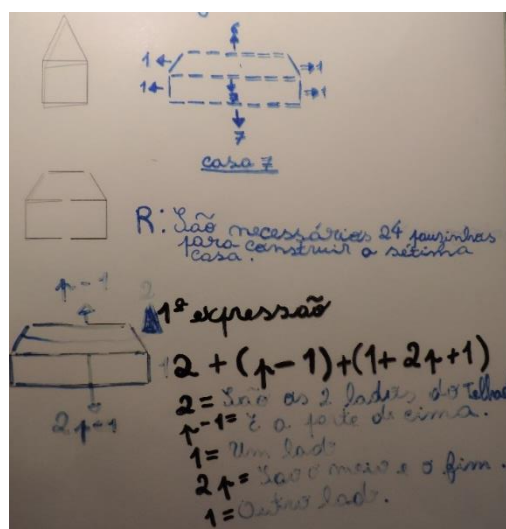 6
1 1
1 1
7
casa 7
R: São necessários 24 pauzinhos
para construir a sétima
casa.
p-1
2
1ª expressão
1 2 + (p-1) + (1+2p+1)
2 = São os 2 lados do Telhado
2p+1
p-1 = É a parte de cima.
1 = Um lad
2p = São o meio e o fim.
1 = Outro lad.